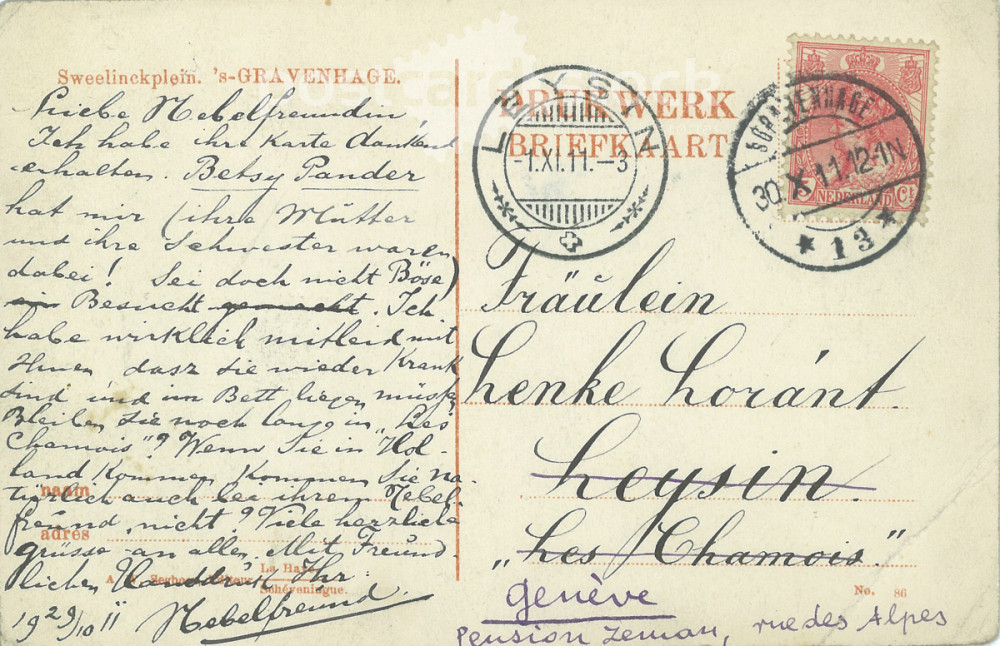 Sweelinckplein. 's-GRAVENHAGE.
Liebe Nebelfreundin!
Ich habe ihre Karte dankend
erhalten. Betsy Pander
hat mir (ihre Mütter
und ihre Schwester waren
dabei! Sei doch nicht Böse)
ein Besucht gemacht. Ich
habe wirklich mitleid mit
Ihnen dasz sie wieder Krank
sind und im Bett liegen müssen
Bleiben Sie noch lange in „Les
Chamois"? Wenn Sie in Hol-
land Kommen Kommen Sie na-
türlich auch bei ihrem Nebel-
freund, nicht? Viele herzliche
grüsse an allen. Mit Freund-
lichen Handdrük Ihr
Nebelfreund.
19 29/10 11
naam
adres
La Haye
Schéveningue.
DRUKWERK
BRIEFKAART
LEYSIN
-1.XI.11.-3
'S GRAVENHAGE
30.X.11.12-1N
* 13 *
5 Ct
NEDERLAND
Fräulein
Lenke Loránt.
Leysin.
„Les Chamois."
Genève
Pension Zeman, rue des Alpes
No. 86